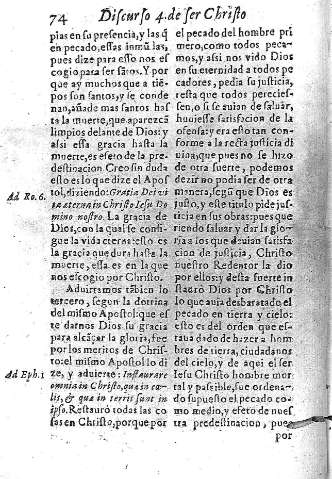 74 Discurso 4. de ser Christo
pias en su presencia, y las q̃
en pecado, essas inmũdas,
pues dize para esso nos es
cogio para ser sãtos. Y por
que ay muchos que a tiẽ-
pos son santos, y se conde
nan, añade mas santos has
ta la muerte, que aparezcã
limpios delante de Dios: y
assi essa gracia hasta la
muerte, es efeto de la pre-
destinacion. Creo sin duda
esto es lo que dize el Apos
tol, diziendo: Gratia Dei vi
Ad Ro. 6.
ta æterna in Christo Iesu Do
mino nostro. La gracia de
Dios, con la qual se consi-
gue la vida eterna: esto es
la gracia que dura hasta la
muerte, essa es en la que
nos escogio por Christo.
Aduirtamos tãbien lo
tercero, segun la dotrina
del mismo Apostol: que es
te darnos Dios su gracia
para alcãçar la gloria, fue
por los meritos de Chris-
to: el mismo Apostol lo di
ze, y aduierte: Instaurare
Ad Eph. 1
omnia in Christo, quæ in cæ-
lis, & quæ in terris sunt in
ipso. Restaurò todas las co
sas en Christo, porque por
el pecado del hombre pri
mero, como todos peca-
mos, y assi nos vido Dios
en su eternidad a todos pe
cadores, pedia su justicia,
resta que todos pereciess-
sen, ò si se auian de saluar,
huuiesse satisfacion de la
ofensa: y era esto tan con-
forme a la resta justicia di
uina, que pues no se hizo
de otra suerte, podemos
dezir no podia ser de otra
manera, segũ que Dios es
justo, y este titulo pide jus-
ticia en sus obras: pues que
riendo saluar y dar la glo-
ria a los que deuian satisfa
cion de justicia, Christo
nuestro Redentor la dio
por ellos: y desta suerte in
staurò Dios por Christo
lo que auia desbaratado el
pecado en tierra y cielo:
esto es del orden que es-
taua dado de hazer a hom
bres de tierra, ciudadanos
del cielo, y de aqui el ser
Iesu Christo hombre mor
tal y passible, fue ordena-
do supuesto el pecado co
mo medio, y efeto de nues
tra predestinacion, pues
por